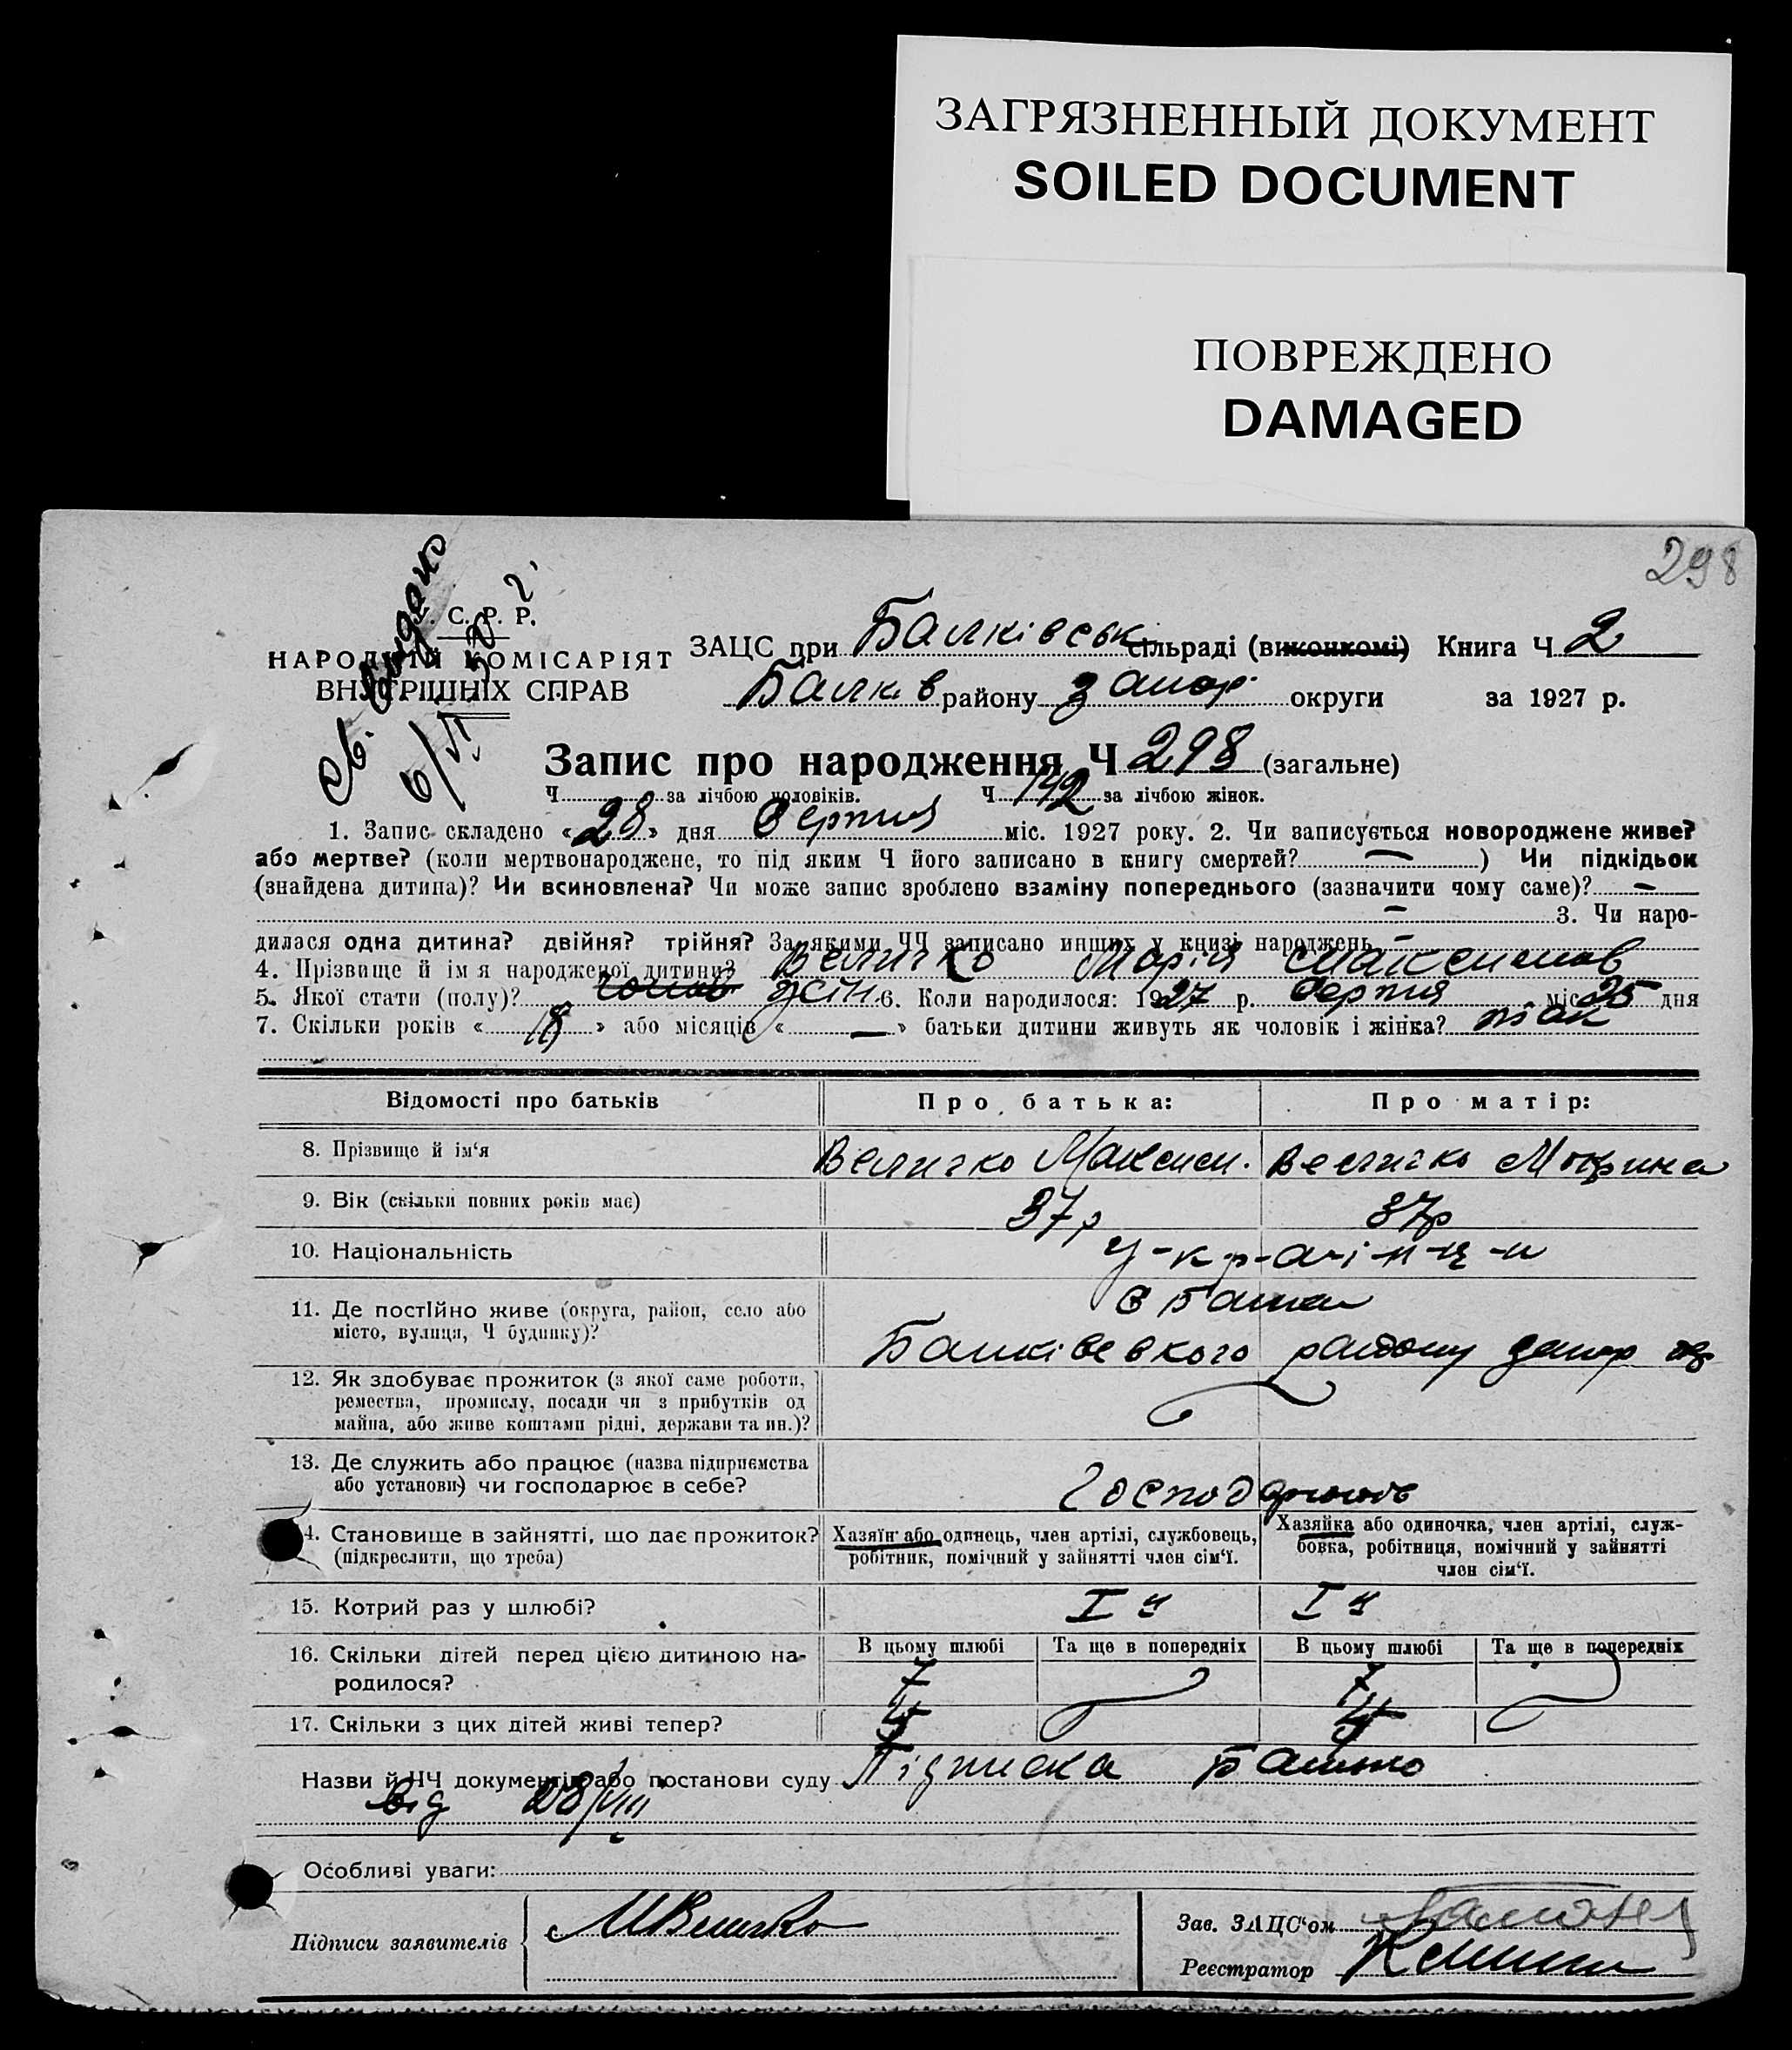 ЗАГРЯЗНЕННЫЙ ДОКУМЕНТ
SOILED DOCUMENT
ПОВРЕЖДЕНО
DAMAGED
298
У. С. Р. Р.
НАРОДНІЙ КОМІСАРІЯТ
ВНУТРІШНІХ СПРАВ
ЗАЦС при Балківськ сільраді (виконкомі) Книга Ч 2
Балків району Запор. округи за 1927 р.
Запис про народження Ч 298 (загальне)
Ч за лічбою чоловіків. Ч 142 за лічбою жінок.
1. Запис складено «28» дня Серпня міс. 1927 року. 2. Чи записується новороджене живе?
або мертве? (коли мертвонароджене, то під яким Ч його записано в книгу смертей? — ) Чи підкідьок
(знайдена дитина)? Чи всиновлена? Чи може запис зроблено взаміну попереднього (зазначити чому саме)? —
— 3. Чи наро-
дилася одна дитина? двійня? трійня? За якими ЧЧ записано инших у книзі народжень —
4. Прізвище й ім'я народженої дитини? Величко Марія Максимов
5. Якої стати (полу)? жін. 6. Коли народилося: 1927 р. Серпня міс. 25 дня
7. Скільки років «18» або місяців «—» батьки дитини живуть як чоловік і жінка? так
Відомості про батьків Про батька: Про матір:
8. Прізвище й ім'я Величко Максим. Величко Мокрина
9. Вік (скільки повних років має) 37р 37р
10. Національність у-кр-а-ї-н-ц-и
11. Де постійно живе (округа, район, село або
місто, вулиця, Ч будинку)?
с Балки
Балківського району запор
12. Як здобуває прожиток (з якої саме роботи,
ремества, промислу, посади чи з прибутків од
майна, або живе коштами рідні, держави та ин.)?
13. Де служить або працює (назва підприємства
або установи) чи господарює в себе?
Господарюють
14. Становище в зайнятті, що дає прожиток?
(підкреслити, що треба)
Хазяїн або одинець, член артілі, службовець,
робітник, помічний у зайнятті член сім'ї.
Хазяйка або одиночка, член артілі, служ-
бовка, робітниця, помічний у зайнятті
член сім'ї.
15. Котрий раз у шлюбі? I й I й
16. Скільки дітей перед цією дитиною на-
родилося?
В цьому шлюбі Та ще в попередніх В цьому шлюбі Та ще в попередніх
7 7
17. Скільки з цих дітей живі тепер?
Назви й ЧЧ документів або постанови суду Підписка Батько
від 28/VIII
Особливі уваги:
Підписи заявителів МВеличко
Зав. ЗАЦС'ом
Реєстратор